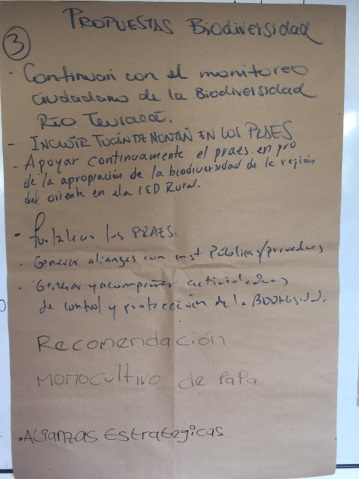 3
PROPUESTAS Biodiversidad
- Continuar con el monitoreo
ciudadano de la Biodiversidad
Río Teusacá.
- INCLUIR TUCÁN DE MONTAÑA EN LOS PRAES
- Apoyar continuamente el praes en pro
de la apropiación de la biodiversidad de la región
del oriente en la IED Rural.
- Fortalecer los PRAES.
- Generar alianzas con inst Públicas/privadas
- Generar y acompañar actividades
de control y protección de la
Recomendación
MONOCULTIVO de PaPa
• Alianzas Estrategicas